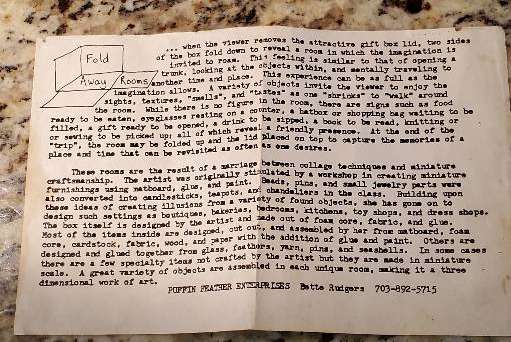 Fold
Away Rooms
... when the viewer removes the attractive gift box lid, two sides
of the box fold down to reveal a room in which the imagination is
invited to roam. This feeling is similar to that of opening a
trunk, looking at the objects within, and mentally traveling to
another time and place. This experience can be as full as the
imagination allows. A variety of objects invite the viewer to enjoy the
sights, textures, "smells", and "tastes" as one "shrinks" to "walk" around
the room. While there is no figure in the room, there are signs such as food
ready to be eaten, eyeglasses resting on a counter, a hatbox or shopping bag waiting to be
filled, a gift ready to be opened, a drink to be sipped, a book to be read, knitting or
or sewing to be picked up; all of which reveal a friendly presence. At the end of the
"trip", the room may be folded up and the lid placed on top to capture the memories of a
place and time that can be revisited as often as one desires.
These rooms are the result of a marriage between collage techniques and miniature
craftsmanship. The artist was originally stimulated by a workshop in creating miniature
furnishings using matboard, glue, and paint. Beads, pins, and small jewelry parts were
also converted into candlesticks, teapots, and chandeliers in the class. Building upon
these ideas of creating illusions from a variety of found objects, she has gone on to
design such settings as boutiques, bakeries, bedrooms, kitchens, toy shops, and dress shops.
The box itself is designed by the artist and made out of foam core, fabric, and glue.
Most of the items inside are designed, cut out, and assembled by her from matboard, foam
core, cardstock, fabric, wood, and paper with the addition of glue and paint. Others are
designed and glued together from glass, feathers, yarn, pins, and seashells. In some cases
there are a few specialty items not crafted by the artist but they are made in miniature
scale. A great variety of objects are assembled in each unique room, making it a three
dimensional work of art.
PUFFIN FEATHER ENTERPRISES Bette Rudgers 703-892-5715